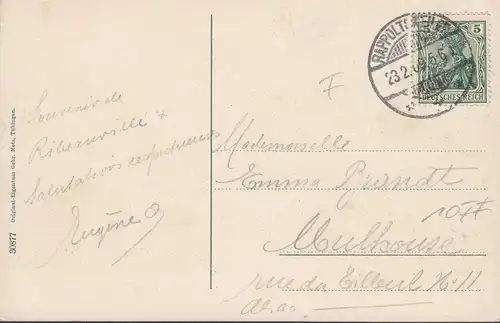 Souvenir de
Ribeauvillé &
Salutations respectueuses
Eugène
30877 Original-Eigentum Gebr. Metz, Tübingen.
RAPPOLTSWEILER
23.2.
5
DEUTSCHES REICH
F
Mademoiselle
Emma Brandt
Mulhouse
rue du Tilleul No 11
Alsace